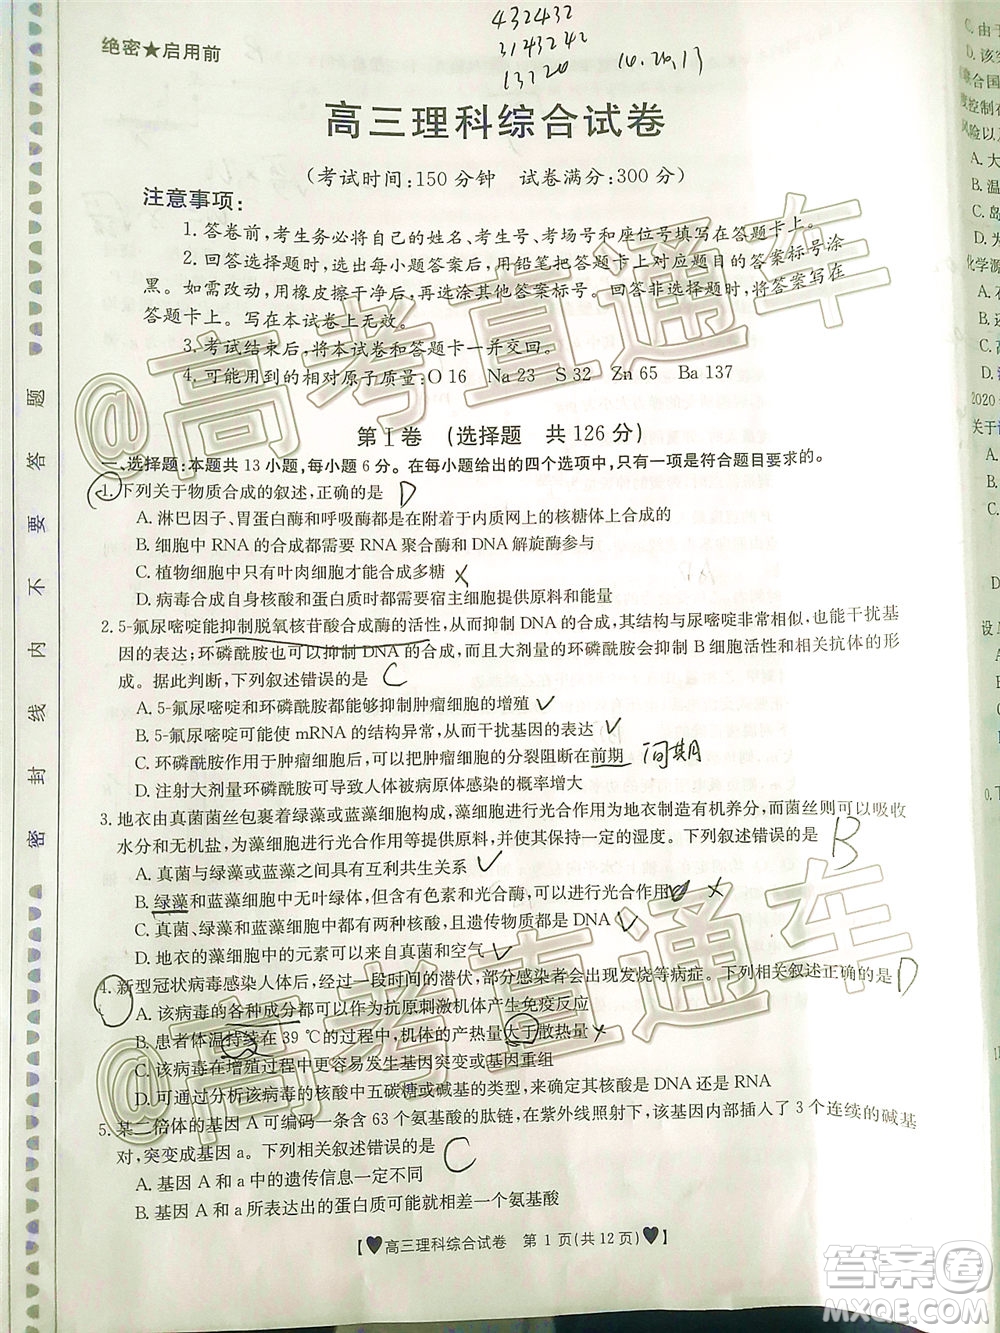 432432
3143242
13220
10.20,13
绝密★启用前
高三理科综合试卷
(考试时间:150分钟 试卷满分:300分)
注意事项:
1.答卷前,考生务必将自己的姓名、考生号、考场号和座位号填写在答题卡上。
2.回答选择题时,选出每小题答案后,用铅笔把答题卡对应题目的答案标号涂
黑。如需改动,用橡皮擦干净后,再选涂其他答案标号。回答非选择题时,将答案写在
答题卡上。写在本试卷上无效。
3.考试结束后,将本试卷和答题卡一并交回。
4.可能用到的相对原子质量:O 16 Na 23 S 32 Zn 65 Ba 137
第Ⅰ卷 (选择题 共126分)
一、选择题:本题共13小题,每小题6分。在每小题给出的四个选项中,只有一项是符合题目要求的。
1.下列关于物质合成的叙述,正确的是 D
A.淋巴因子、胃蛋白酶和呼吸酶都是在附着于内质网上的核糖体上合成的
B.细胞中RNA的合成都需要RNA聚合酶和DNA解旋酶参与
C.植物细胞中只有叶肉细胞才能合成多糖
D.病毒合成自身核酸和蛋白质时都需要宿主细胞提供原料和能量
2.5-氟尿嘧啶能抑制脱氧核苷酸合成酶的活性,从而抑制DNA的合成,其结构与尿嘧啶非常相似,也能干扰基
因的表达;环磷酰胺也可以抑制DNA的合成,而且大剂量的环磷酰胺会抑制B细胞活性和相关抗体的形
成。据此判断,下列叙述错误的是 C
A.5-氟尿嘧啶和环磷酰胺都能够抑制肿瘤细胞的增殖
B.5-氟尿嘧啶可能使mRNA的结构异常,从而干扰基因的表达
C.环磷酰胺作用于肿瘤细胞的分裂阻断在前期 间期
D.注射大剂量环磷酰胺可导致人体被病原体感染的概率增大
3.地衣由真菌菌丝包裹着绿藻或蓝藻细胞构成,藻细胞进行光合作用为地衣制造有机养分,而菌丝则可以吸收
水分和无机盐,为藻细胞进行光合作用等提供原料,并使藻细胞保持一定的湿度。下列叙述错误的是 B
A.真菌与绿藻或蓝藻之间具有互利共生关系
B.绿藻和蓝藻细胞中无叶绿体,但都含有色素和光合酶,可以进行光合作用
C.真菌、绿藻和蓝藻细胞中都有两种核酸,且遗传物质都是DNA
D.地衣的藻细胞中的元素可以来自真菌和空气
4.新型冠状病毒感染人体后,经过一段时间的潜伏,部分感染者会出现发烧等病症。下列相关叙述正确的是 D
A.该病毒的各种成分都可以作为抗原刺激机体产生免疫反应
B.患者体温持续在39 ℃的过程中,机体的产热量大于散热量
C.该病毒在增殖过程中更容易发生基因突变或基因重组
D.可通过分析该病毒的核酸中五碳糖或碱基的类型,来确定其核酸是DNA还是RNA
5.某二倍体的基因A可编码一条含63个氨基酸的肽链,在紫外线照射下,该基因内部插入了3个连续的碱基
对,突变成基因a。下列相关叙述错误的是 C
A.基因A和a中的遗传信息一定不同
B.基因A和a所表达出的蛋白质可能就相差一个氨基酸
【♥高三理科综合试卷 第1页(共12页)♥】
密 封 线 内 不 要 答 题
@高考直通车
@高考直通车
答案圈
MXQE.COM